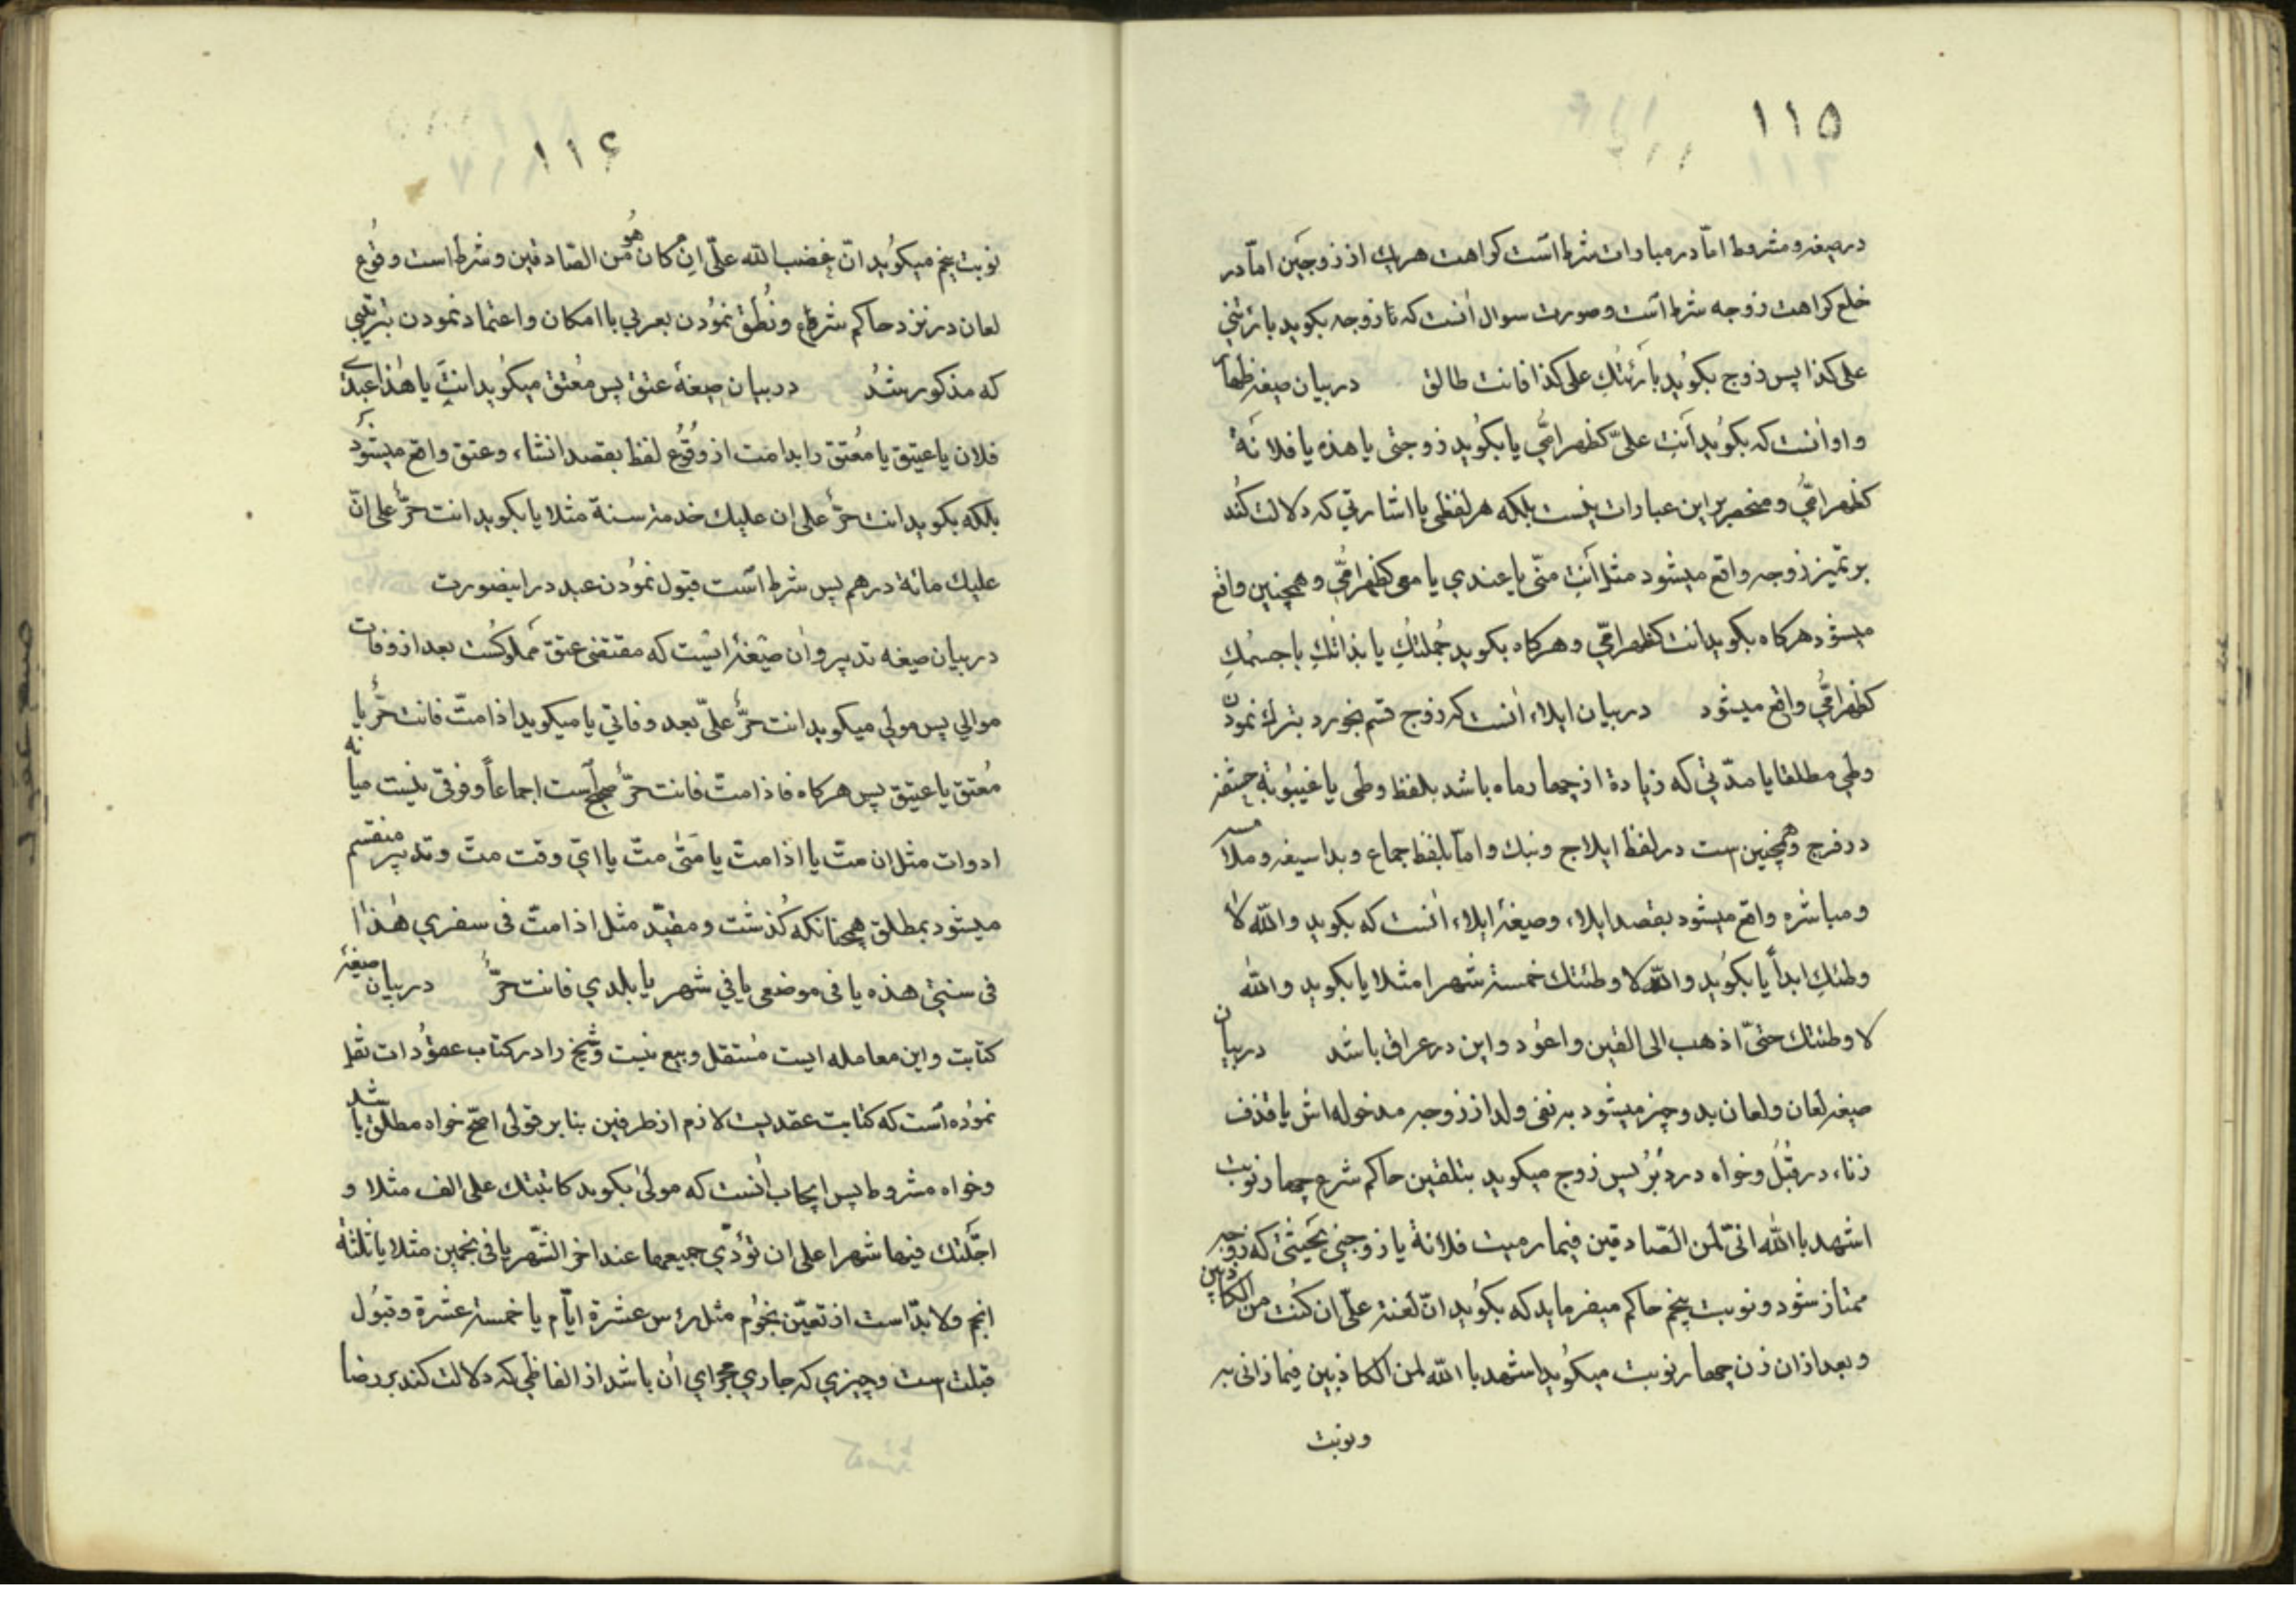 ۱۱۵
در صیغه و مشروط امّا در مبارات شرط است کراهت هریك از زوجین امّا در
خلع کراهت زوجه شرط است و صورت سوال آنست که تا زوجه بکوید بارئنی
علی کذا پس زوج بکوید بارَئتُكِ علی کذا فانت طالق در بیان صیغه ظهار
و او انست که بکوید اَنتِ علیّ کظهر امّي یا بکوید زوجتی یا هذه یا فلانة
کظهر امّي و منحصر بر این عبارات نیست بلکه هر لفظی یا اشارتي که دلالت کند
بر تمیز زوجه واقع میشود مثل اَنتِ منّی یا عندي یا معی کظهر امّي و همچنین واقع
میشود هرکاه بکوید انت کظهر امّي و هرکاه بکوید جُملتُكِ یا بذاتكِ یا جسمُكِ
کظهر امّي واقع میشود در بیان ایلاء انست که زوج قسم بخورد بترك نمودن
وطي مطلقا یا مدّتي که زیاده از چهار ماه باشد بلفظ وطی یا غیبُوبَة حشفه
در فرج و همچنین است در لفظ ایلاج و نیك و امّا بلفظ جماع و بدا سیغه و ملامسه
و مباشره واقع میشود بقصد ایلاء، و صیغهٔ ایلاء انست که بکوید والله لا
وطئتكِ ابداً یا بکوید والله لا وطئتك خمسة شهرا مثلا یا بکوید والله
لا وطئتك حتیّ اذهب الی القین و اعود و این در عراق باشد در بیان
صیغه لعان و لعان بدو چیز میشود به نفی ولد از زوجه مدخوله اش یا قذف
زناء در قُبُل و خواه در دُبُر پس زوج میکوید بتلقین حاکم شرع چهار نوبت
اشهد بالله انّی لمن الصّادقین فیما رمیت فلانة یا زوجتي بحیثی که زوجه
ممتاز شود و نوبت پنجم حاکم میفرماید که بکوید انّ لعنة علیّ ان کنت من الکاذبین
و بعد از ان زن چهار نوبت میکوید اشهد بالله لمن الکاذبین فیما زانی به
و نوبت
۱۱۶
نوبت پنجم میکوید انّ غضب الله علیّ ان کان هو من الصّادقین و شرط است وقوع
لعان در نزد حاکم شرع و نُطق نمُودن بعربي با امکان و اعتماد نمودن بترتیبی
که مذکور شُد در بیان صیغهٔ عتق پس مُعتق میکوید انتَ یا هذا عبدي
فلان یا عتیق یا مُعتق را بدا مت از وُقُوع لفظ بقصد انشاء، و عتق واقع میشود
بلکه بکوید انت حرٌّ علی ان علیك خدمة سنة مثلا یا بکوید انت حرٌّ علی انّ
علیك مائة درهم پس شرط است قبول نمُودن عبد در اینصورت
در بیان صیغه تدبیر و ان صیغهٔ ایست که مقتضی عتق مملوکست بعد از وفات
موالي پس مولي میکوید انت حرٌّ علیّ بعد وفاتي یا میکوید اذا متّ فانت حرٌّ یا
مُعتق یا عتیق پس هرکاه فاذا متّ فانت حرّ صحیح است اجماعاً و فرقی نیست میانه
ادوات مثل ان متّ یا اذا متّ یا متی متّ یا ايّ وقت متّ و تدبیر منقسم
میشود بمطلق همچنانکه کُذشت و مقیّد مثل اذا متّ فی سفري هذا
فی سنتي هذه یا فی موضعی یا في شهر یا بلدي فانت حرٌّ در بیان صیغهٔ
کتابت و این معامله ایست مُستقل و بیع نیست و شیخ را در کتاب عقوُدات نقل
نموُده است که کتابت عقدیست لازم از طرفین بنا بر قولی اصحّ خواه مطلق باشد
و خواه مشروط پس ایجاب انست که مولی بکوید کاتبتك علی الف مثلا و
اجّلتك فیها شهرا علی ان تؤدّي جمیعها عند اخر الشّهر یا فی نجمین مثلا یا ثلثة
انجم و لابدّ است از تعیّن نجُوم مثل رئس عشرة ایّام یا خمسة عشرة و قبُول
قبلت است و چیزي که جاري مجراي ان باشد از الفاظی که دلالت کند بر رضا